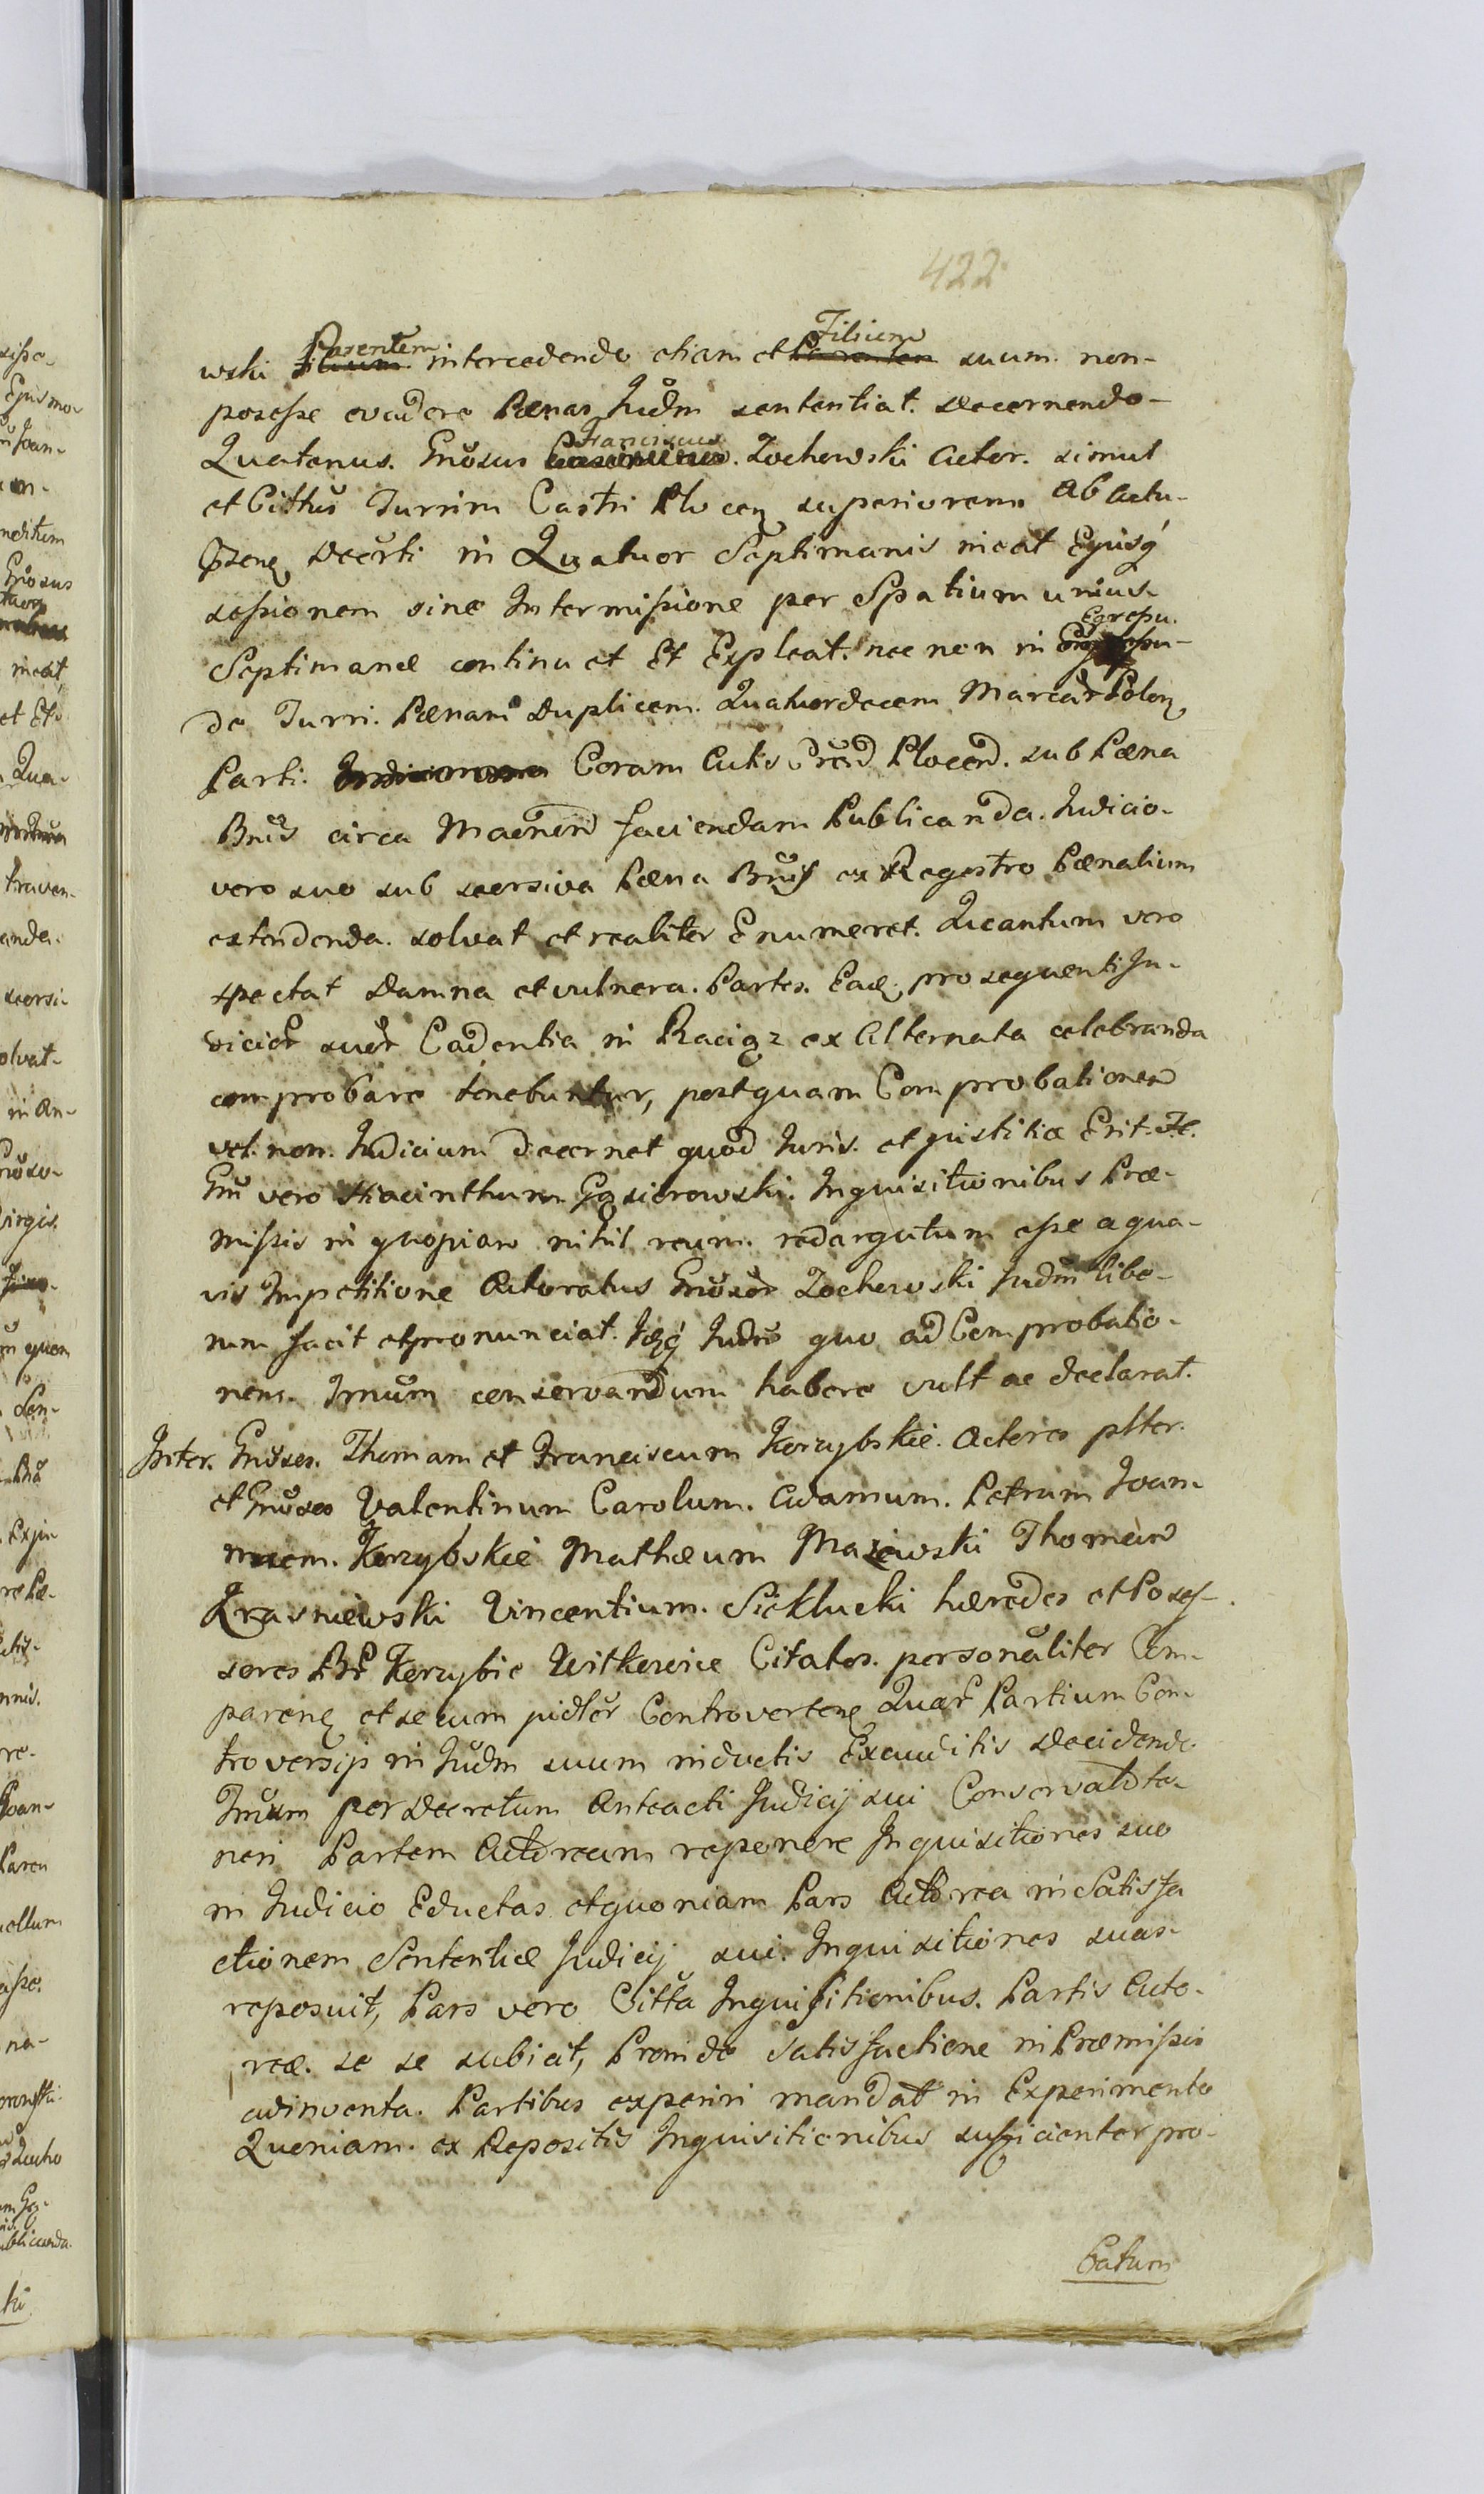 422
Parentem Filium
wski intercedendo etiam et suum non-
posesse evadere Pænas Judm sententiat. decernendo-
Franciscus
Quatenus. Gnosus Zochowski Actor. simul
et Cittus Turrim Castri Plocen superiorem ab actu-
pzene decrti in Quatuor Septimanis ineat Ejusq
sessionem sine Intermissione per Spatium unius-
Egressu.
Septimanæ continuet Et Expleat. nec non in
de Turri. Pænam duplicem. Quatuordecem Marcar Polon
Parti. Coram Actis Prend Plocend. sub Pæna
Bnis circa faciendam Publicanda. Judicio-
vero suo sub seorsiva Pæna Bnis ex Regestro Pænalium
extendenda. solvat et realiter Enumeret. Quantum vero
spectat damna et vulnera. Partes. Eaed. pro sequenti Ju-
dicior suor Cadentia in Raciąz ex Alternata celebranda
comprobare tenebuntur, postquam Comprobationem
vel. non. Judicium decernet quod Juris. et justitiæ Erit.
Gnu vero Hiacinthum Gąsiorowski. Inquisitionibus Præ-
missis in quopiam nihil reum. redargutum esse a qua-
vis Impetitione Actoratus Gnosor Zochowski Judm libe-
rum facit et pronunciat. Idq Judm quo ad Comprobatio-
nem. Irnum conservandum habere vult ac declarat.
Inter. Gnoses. Thomam et Franciscum Korzybskie. Actores plter.
et Gnoses Valentinum Carolum. Adamum. Petrum Joan-
nem. Korzybskie Mathæum Mazewski Thomam
Krasniewski Vincentium. Sieklucki hæredes et Poses-
sores Br Korzybie Witkowice Citatos. personaliter Com-
paren et secum jidler Controverten Quar Partium Con-
troversijs in Judm suum inductis Exauditis decidendo
Irnum per Decretum Anteacti Judicij sui Conservat te-
neri Partem Actoream reponere Inquisitiones suo
in Judicio Eductas et quoniam Pars Actorea in Satisfa
ctionem Sententiæ Judicij sui. Inquisitiones suas-
reposuit, Pars vero Citta Inquisitionibus. Partis Acto-
reæ. se se subicit, Proinde satisfactione in Præmissis
adinventa. Partibus experiri mandat in Experimento
Quoniam. ex Repositis Inquisitionibus sufficienter pro-
batum